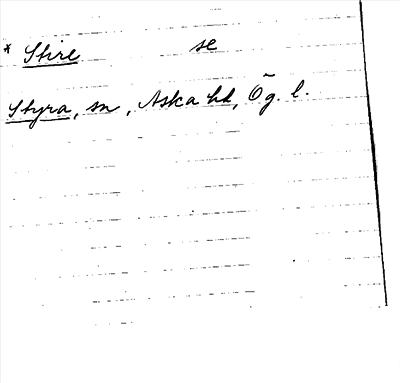 * Stire se
Styra, sn, Aska hd, Ög. l.